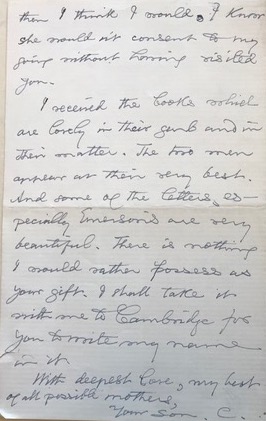 then I think I would. I know
she would n't consent to my
going without having visited
you.
I received the books which
are lovely in their garb and in
their matter. The two men
appear at their very best.
And some of the letters, es-
pecially Emerson's are very
beautiful. There is nothing
I would rather possess as
your gift. I shall take it
with me to Cambridge for
you to write my name
in it.
With deepest love, my best
of all possible mothers,
Your Son. C.